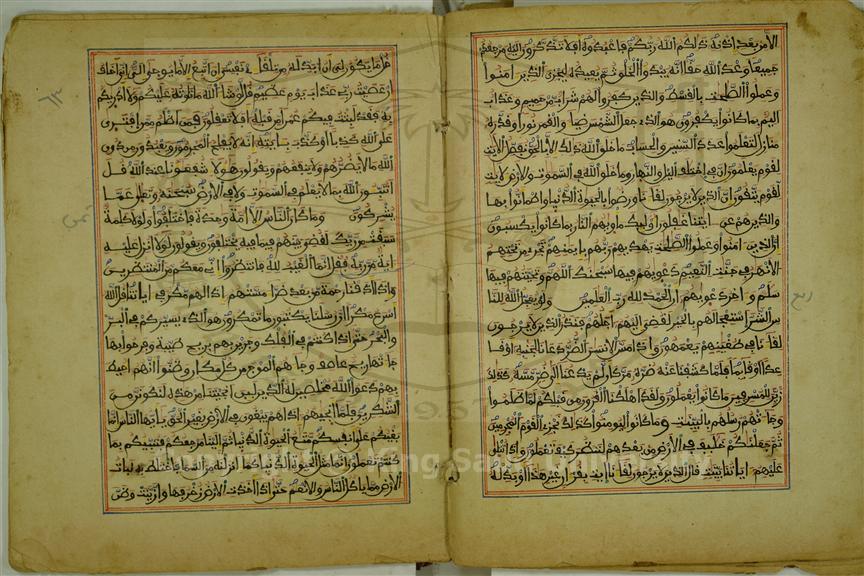 الامر بعد اذنه ذلكم الله ربكم فاعبدوه افلا تذكرون اليه مرجعكم
جميعا وعد الله حقا انه يبدؤا الخلق ثم يعيده ليجزي الذين امنوا
وعملوا الصلحت بالقسط والذين كفروا لهم شراب من حميم وعذاب
اليم بما كانوا يكفرون هو الذي جعل الشمس ضياء والقمر نورا وقدره
منازل لتعلموا عدد السنين والحساب ما خلق الله ذلك الا بالحق نفصل الايت
لقوم يعلمون ان في اختلف اليل والنهار وما خلق الله في السموت والارض لايت
لقوم يتقون ان الذين لا يرجون لقاءنا ورضوا بالحيوة الدنيا واطمانوا بها
والذين هم عن ايتنا غفلون اوليك ماويهم النار بما كانوا يكسبون
ان الذين امنوا وعملوا الصلحت يهديهم ربهم بايمنهم تجري من تحتهم
الانهر في جنت النعيم دعويهم فيها سبحنك اللهم وتحيتهم فيها
سلم واخر دعويهم ان الحمد لله رب العلمين ولو يعجل الله للنا
س الشر استعجالهم بالخير لقضي اليهم اجلهم فنذر الذين لا يرجون
لقاءنا في طغينهم يعمهون واذا مس الانسن الضر دعانا لجنبه او قا
عدا او قايما فلما كشفنا عنه ضره مر كان لم يدعنا الى ضر مسه كذلك
زين للمسرفين ما كانوا يعملون ولقد اهلكنا القرون من قبلكم لما ظلموا
وجاءتهم رسلهم بالبينت وما كانوا ليومنوا كذلك نجزي القوم المجرمين
ثم جعلنكم خليف في الارض من بعدهم لننظر كيف تعملون واذا تتلى
عليهم اياتنا بينت قال الذين لا يرجون لقاءنا ايت بقران غير هذا او بدله
قل ما يكون لي ان ابدله من تلقاءي نفسي ان اتبع الا ما يوحى الي اني اخاف
ان عصيت ربي عذاب يوم عظيم قل لو شاء الله ما تلوته عليكم ولا ادريكم
به فقد لبثت فيكم عمرا من قبله افلا تعقلون فمن اظلم ممن افترى
على الله كذبا او كذب بايته انه لا يفلح المجرمون ويعبدون من دون
الله ما لا يضرهم ولا ينفعهم ويقولون هؤلاء شفعؤنا عند الله قل
اتنبئون الله بما لا يعلم في السموت ولا في الارض سبحنه وتعلى عما
يشركون وما كان الناس الا امة وحدة فاختلفوا ولولا كلمة
سبقت من ربك لقضي بينهم فيما فيه يختلفون ويقولون لولا انزل عليه
اية من ربه فقل انما الغيب لله فانتظروا اني معكم من المنتظرين
واذا اذقنا الناس رحمة من بعد ضراء مستهم اذا لهم مكر في اياتنا قل الله
اسرع مكرا ان رسلنا يكتبون ما تمكرون هو الذي يسيركم في البر
والبحر حتى اذا كنتم في الفلك وجرين بهم بريح طيبة وفرحوا بها
جاءتها ريح عاصف وجاءهم الموج من كل مكان وظنوا انهم احيط
بهم دعوا الله مخلصين له الدين لين انجيتنا من هذه لنكونن من
الشكرين فلما انجيهم اذا هم يبغون في الارض بغير الحق يايها الناس انما
بغيكم على انفسكم متع الحيوة الدنيا ثم الينا مرجعكم فننبيكم بما
كنتم تعملون انما مثل الحيوة الدنيا كماء انزلنه من السماء فاختلط به نبات
الارض مما ياكل الناس والانعم حتى اذا اخذت الارض زخرفها وازينت وظن